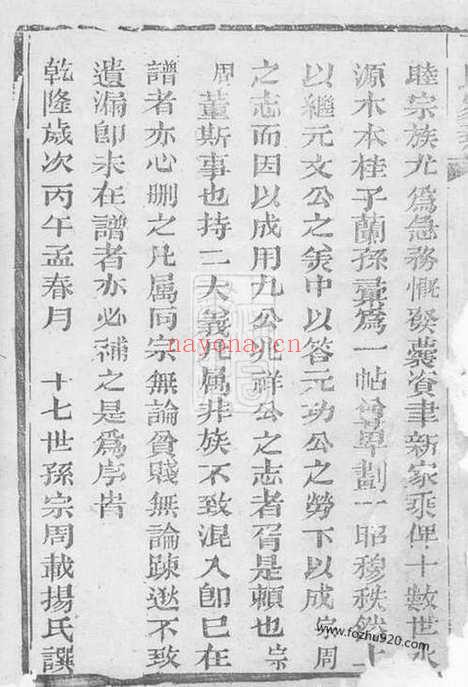 睦宗族尤爲急務慨發囊資聿新家乘俾十數世水
源木本桂子蘭孫彙爲一帖尊卑劃一昭穆秩然上
以繼元文公之美中以答元功公之勞下以成宗周
之志而因以成用九公兆祥公之志者胥是賴也宗
周董斯事也持二大義凡属非族不致混入卽已在
譜者亦必删之凡属同宗無論貧賤無論踈逖不致
遺漏卽未在譜者亦必補之是爲序旹
乾隆歲次丙午孟春月 十七世孫宗周載揚氏譔
nayona.cn
www.fozhu920.com